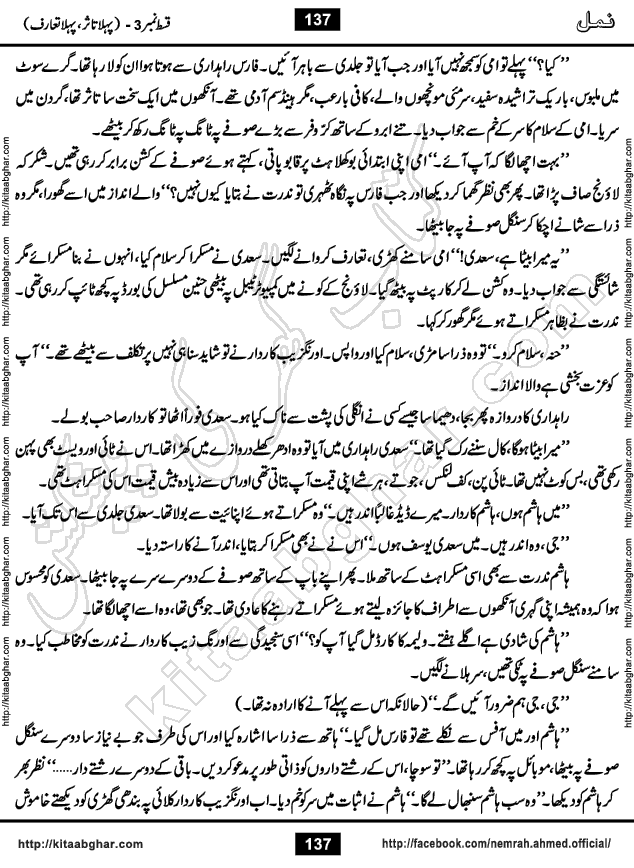 نمل
137
قسط نمبر 3 - (پہلا تاثر، پہلا تعارف)
’’کیا؟‘‘ پہلے تو امی کو سمجھ نہیں آیا اور جب آیا تو جلدی سے باہر آئیں۔ فارس راہداری سے ہوتا ہوا ان کو لا رہا تھا۔ گرے سوٹ
میں ملبوس، باریک تراشیدہ سفید، سرمئی مونچھوں والے، کافی بارعب، مگر ہینڈسم آدمی تھے۔ آنکھوں میں ایک سخت سا تاثر تھا، گردن میں
سریا۔ امی کے سلام کا سر کے خم سے جواب دیا۔ تنے ابرو کے ساتھ کروفر سے بڑے صوفے پہ ٹانگ پہ ٹانگ رکھ کر بیٹھے۔
’’بہت اچھا لگا کہ آپ آئے۔‘‘ امی اپنی ابتدائی بوکھلاہٹ پر قابو پاتی، کہتے ہوئے صوفے کے کشن برابر کر رہی تھیں۔ شکر کہ
لاؤنج صاف پڑا تھا۔ پھر بھی نظر گھما کر دیکھا اور جب فارس پہ نگاہ ٹھہری تو ندرت نے بتایا کیوں نہیں؟‘‘ والے انداز میں اسے گھورا، مگر وہ
ذرا سے شانے اچکا کر سنگل صوفے پہ جا بیٹھا۔
’’یہ میرا بیٹا ہے، سعدی!‘‘ امی سامنے کھڑی، تعارف کروانے لگیں۔ سعدی نے مسکرا کر سلام کیا، انہوں نے بنا مسکرائے مگر
شائستگی سے جواب دیا۔ وہ کشن لے کر کارپٹ پہ بیٹھ گیا۔ لاؤنج کے کونے میں کمپیوٹر ٹیبل پہ بیٹھی حنین مسلسل کی بورڈ پہ کچھ ٹائپ کر رہی تھی۔
ندرت نے بظاہر مسکراتے ہوئے مگر گھور کر کہا۔
’’حنہ، سلام کرو۔‘‘ تو وہ ذرا سا مڑی، سلام کیا اور واپس۔ اورنگزیب کاردار نے تو شاید سنا ہی نہیں پر تکلف سے بیٹھے تھے۔ ’’آپ
کو عزت بخشی ہے والا انداز۔
راہداری کا دروازہ پھر بجا، دھیما سا جیسے کسی نے انگلی کی پشت سے ناک کیا ہو۔ سعدی فوراً اٹھا تو کاردار صاحب بولے۔
’’میرا بیٹا ہوگا، کال سننے رک گیا تھا۔‘‘ سعدی راہداری میں آیا تو وہ ادھر کھلے دروازے میں کھڑا تھا۔ اس نے ٹائی اور ویسٹ بھی پہن
رکھی تھی، بس کوٹ نہیں تھا۔ ٹائی پن، کف لنکس، جوتے، ہر شے اپنی قیمت آپ بتاتی تھی اور اس سے زیادہ بیش قیمت اس کی مسکراہٹ تھی۔
’’میں ہاشم ہوں، ہاشم کاردار۔ میرے ڈیڈ غالباً اندر ہیں۔‘‘ وہ مسکراتے ہوئے اپنائیت سے بولا تھا۔ سعدی جلدی سے اس تک آیا۔
’’جی، وہ اندر ہیں۔ میں سعدی یوسف ہوں۔‘‘ اس نے نے بھی مسکرا کر بتایا، اندر آنے کا راستہ دیا۔
ہاشم ندرت سے بھی اسی مسکراہٹ کے ساتھ ملا۔ پھر اپنے باپ کے ساتھ صوفے کے دوسرے سرے پہ جا بیٹھا۔ سعدی کو محسوس
ہوا کہ وہ ہمیشہ اپنی گہری آنکھوں سے اطراف کا جائزہ لیتے ہوئے مسکراتے رہنے کا عادی تھا۔ جو بھی تھا، وہ اسے اچھا لگا تھا۔
’’ہاشم کی شادی ہے اگلے ہفتے۔ ولیمہ کا کارڈ مل گیا آپ کو؟‘‘ اسی سنجیدگی سے اورنگ زیب کاردار نے ندرت کو مخاطب کیا۔ وہ
سامنے سنگل صوفے پہ ٹکی تھیں، سر ہلانے لگیں۔
’’جی، جی ہم ضرور آئیں گے۔‘‘ (حالانکہ اس سے پہلے آنے کا ارادہ نہ تھا۔)
’’ہاشم اور میں آفس سے نکلے تھے تو فارس مل گیا۔‘‘ ہاتھ سے ذرا سا اشارہ کیا اور اس کی طرف جو بے نیاز سا دوسرے سنگل
صوفے پہ بیٹھا، موبائل پہ کچھ کر رہا تھا۔ ’’تو سوچا، اس کے رشتے داروں کو ذاتی طور پر مدعو کر دیں۔ باقی کے دوسرے رشتے دار......‘‘ نظر پھیر
کر ہاشم کو دیکھا۔ ’’وہ سب ہاشم سنبھال لے گا۔‘‘ ہاشم نے اثبات میں سر کو خم دیا۔ اب اورنگزیب کاردار کلائی پہ بندھی گھڑی کو دیکھتے خاموش
http://kitaabghar.com
137
http://facebook.com/nemrah.ahmed.official/
http://kitaabghar.com
کتاب گھر کی پیشکش
kitaabghar.com